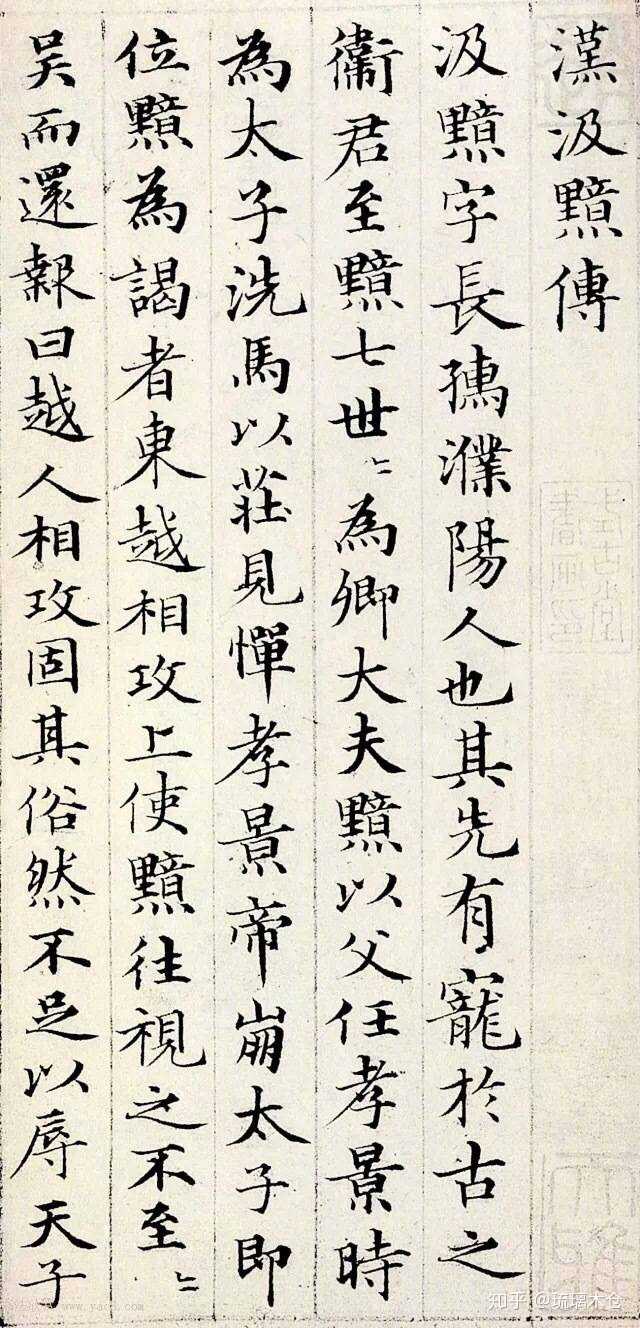 漢汲黯傳
汲黯字長孺濮陽人也其先有寵於古之
衛君至黯七世〻為卿大夫黯以父任孝景時
為太子洗馬以莊見憚孝景帝崩太子即
位黯為謁者東越相攻上使黯往視之不至〻
吳而還報曰越人相攻固其俗然不足以辱天子
知乎 @琉璃木仓